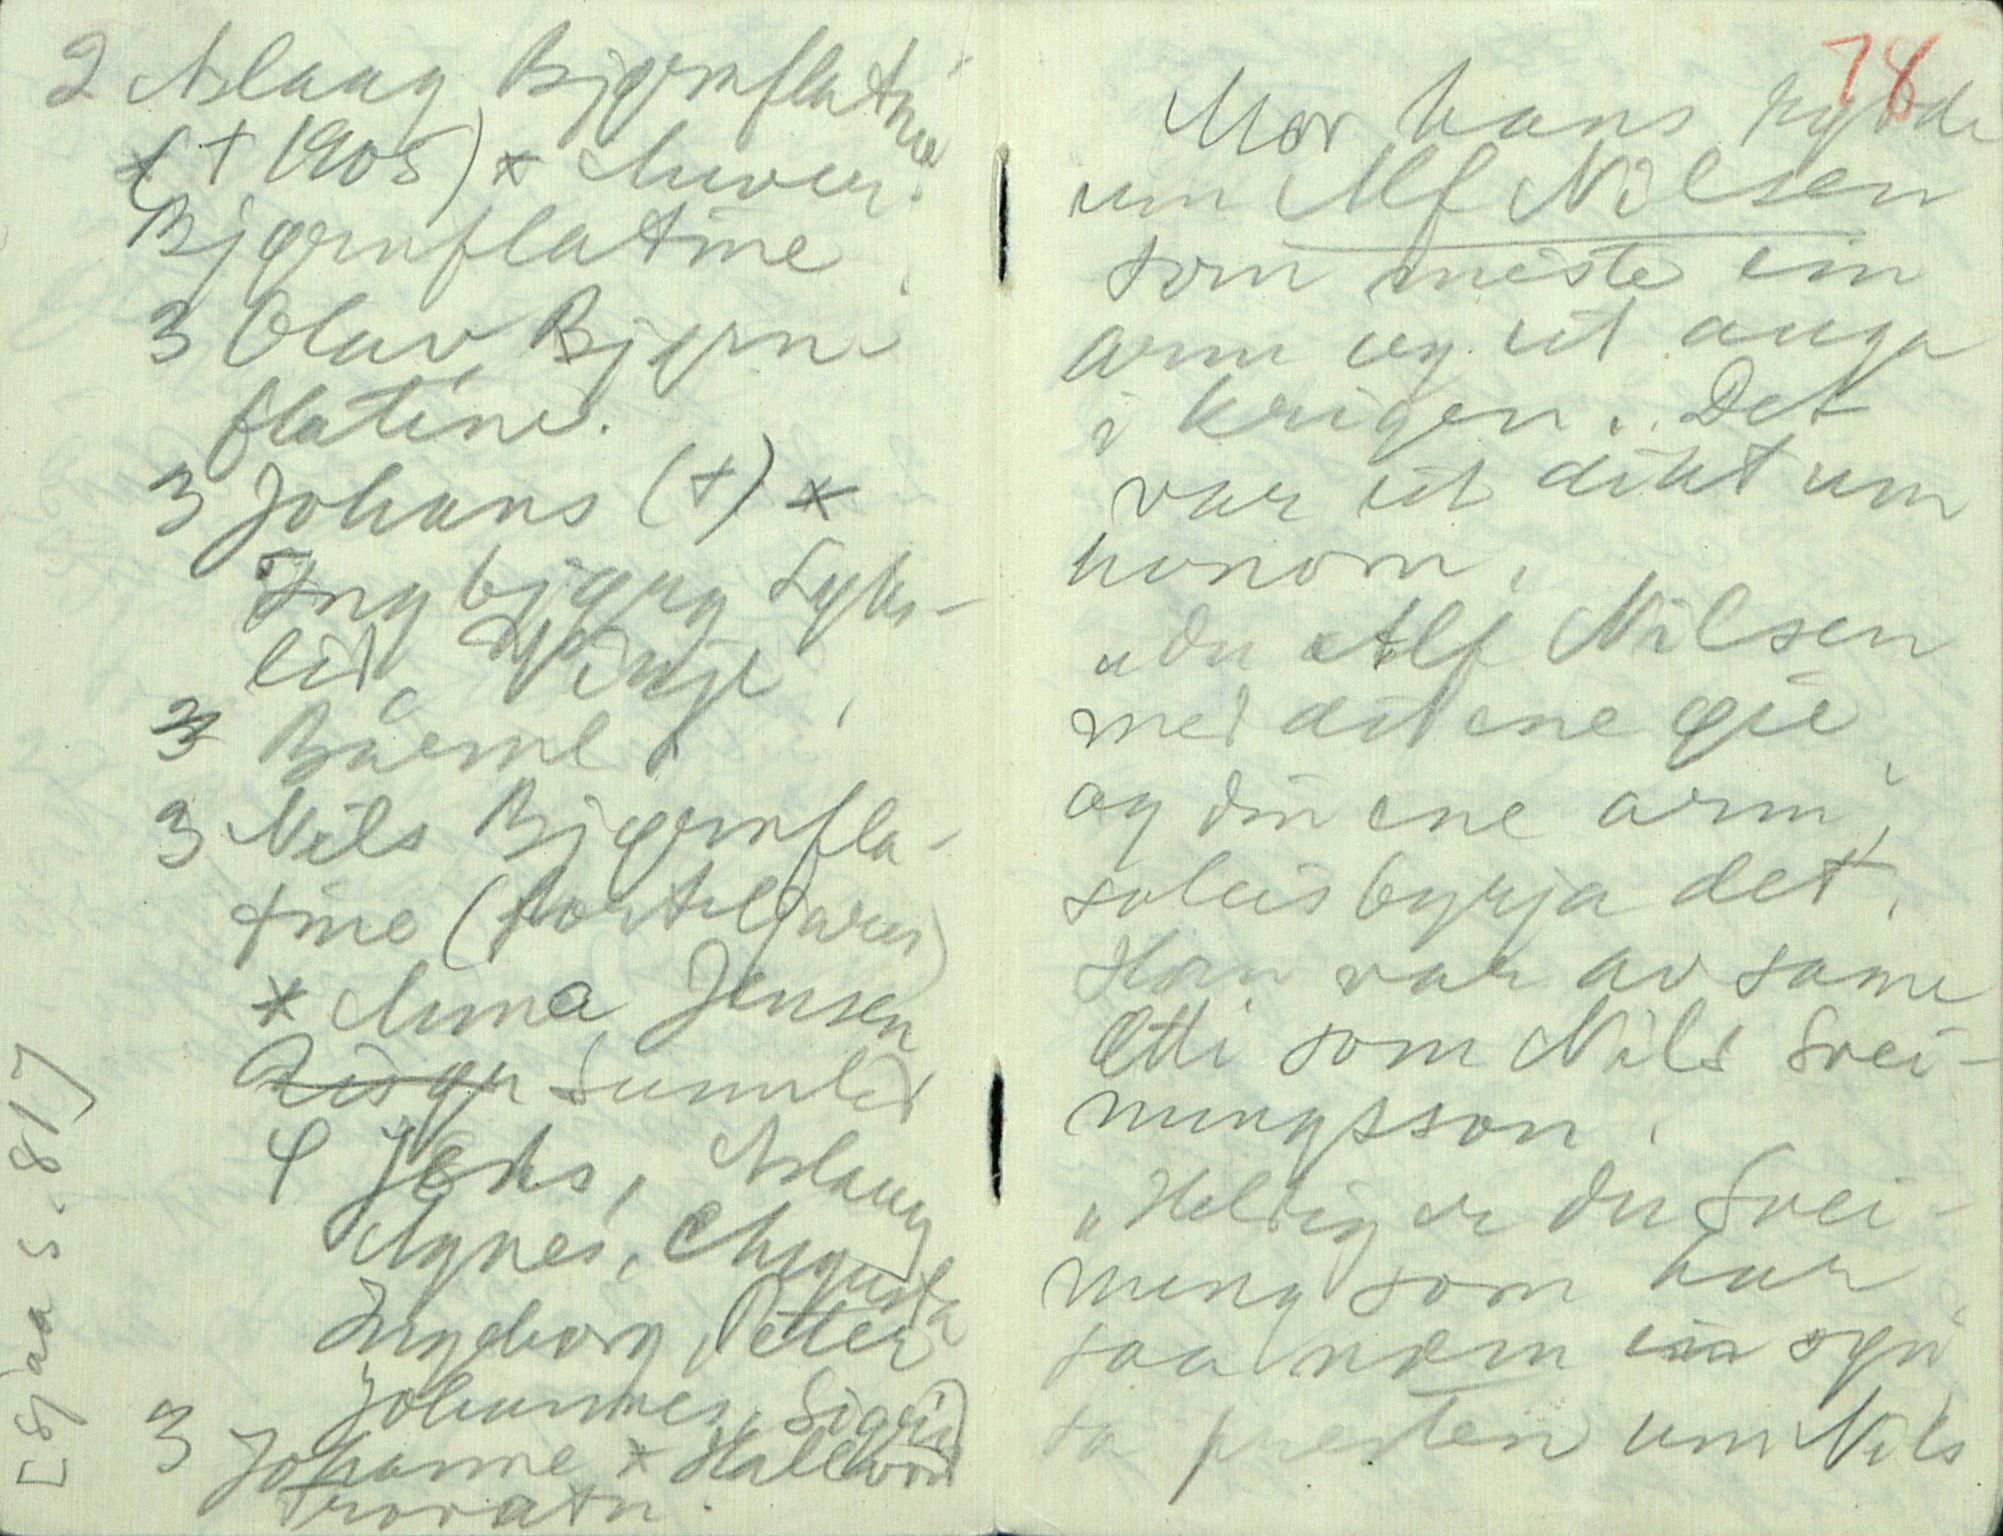 2 Aslaug Bjørnflatine
(† 1905) x Anver.
Bjørnflatine
3 Olav Bjørn-
flatine.
3 Johans (†) x
Ingbjørg Syns-
lid, Vinje
3 Båeml.
3 Nils Bjørnfla-
tine (forteljaren)
x Anna Jensen
Sunnlid
4 Jens, Aslaug
Agnes, Augusta
Ingeborg, Petter
Johannes, Sigrid
3 Johanne x Hallvord
Trovatn.
[Sjaa s. 81]
78
Mor hans
um Alf Nilsen
som miste ein
arm og eit auga
i krigen. Det
var eit dikt um
honom.
"Du Alf Nilsen
med dit ene øie
og din ene arm",
soleis byrja det.
Han var av same
ætti som Nils Svei-
nungsson.
"Heldig er du Svei-
nung som har
saa næm ein syn"
sa presten um Nils